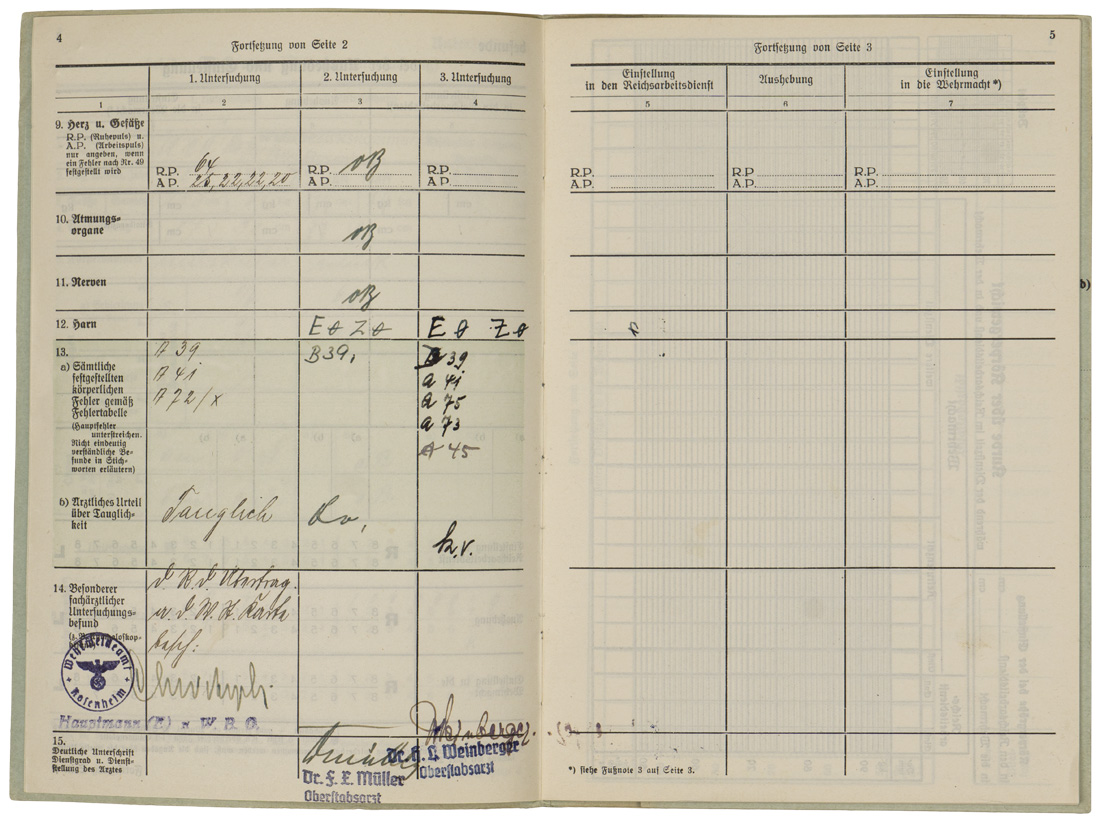 4
Fortsetzung von Seite 2
1. Untersuchung
2. Untersuchung
3. Untersuchung
1
2
3
4
9. Herz u. Gefäße
R.P. (Ruhepuls) u.
A.P. (Arbeitspuls)
nur angeben, wenn
ein Fehler nach Nr. 49
festgestellt wird
R.P. 64
A.P. 25, 22, 22, 20
R.P. oB
A.P.
R.P.
A.P.
10. Atmungs-
organe
oB
11. Nerven
oB
12. Harn
E ɵ Z ɵ
E ɵ Z ɵ
13.
a) Sämtliche
festgestellten
körperlichen
Fehler gemäß
Fehlertabelle
(Hauptfehler
unterstreichen.
Nicht eindeutig
verständliche Be-
funde in Stich-
worten erläutern)
A 39
A 41
A 72/x
B 39,
39
a 41
a 75
a 73
A 45
b) Ärztliches Urteil
über Tauglich-
keit
Tauglich
k.v.
14. Besonderer
fachärztlicher
Untersuchungs-
befund
d. R. d. Übertrag.
a. d. W. St. Karte
besch:
Wehrmeldeamt
Rosenheim
Hauptmann (E) u W. B. O.
15.
Deutliche Unterschrift
Dienstgrad u. Dienst-
stellung des Arztes
Dr. F. X. Müller
Oberstabsarzt
Weinberger
Dr. H. L. Weinberger
Oberstabsarzt
5
Fortsetzung von Seite 3
Einstellung
in den Reichsarbeitsdienst
Aushebung
Einstellung
in die Wehrmacht *)
5
6
7
R.P.
A.P.
R.P.
A.P.
R.P.
A.P.
*) siehe Fußnote 3 auf Seite 3.
b)